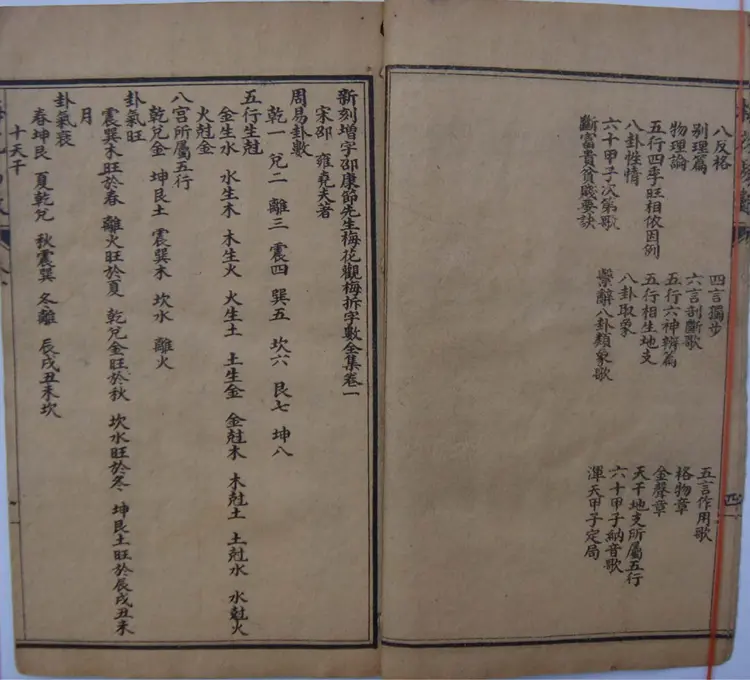 八反格 四言獨步 五言作用歌
别理篇 六言剖斷歌 格物章
物理論 五行六神辨篇 金聲章
五行四季旺相依因例 五行相生地支 天干地支所屬五行
八卦性情 八卦取象 六十甲子納音歌
六十甲子次第歌 繫辭八卦類象歌 渾天甲子定局
斷富貴貧賤要訣
新刻增字邵康節先生梅花觀梅拆字數全集卷一
宋邵 雍堯夫著
周易卦數
乾一 兌二 離三 震四 巽五 坎六 艮七 坤八
五行生尅
金生水 水生木 木生火 火生土 土生金 金尅木 木尅土 土尅水 水尅火
火尅金
八宮所屬五行
乾兌金 坤艮土 震巽木 坎水 離火
卦氣旺
震巽木旺於春 離火旺於夏 乾兌金旺於秋 坎水旺於冬 坤艮土旺於辰戌丑未
月
卦氣衰
春坤艮 夏乾兌 秋震巽 冬離 辰戌丑未坎
十天干